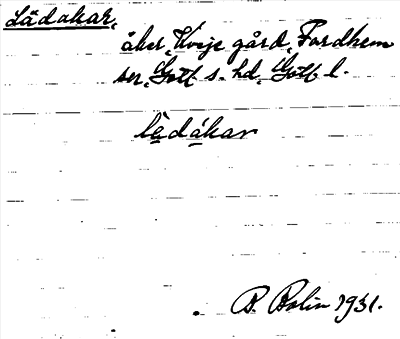 Lädakar,
åker, Kvije gård, Fardhem
sn, Gotl s. hd, Gotl. l.
lèdákar
B. Bolin 1931.